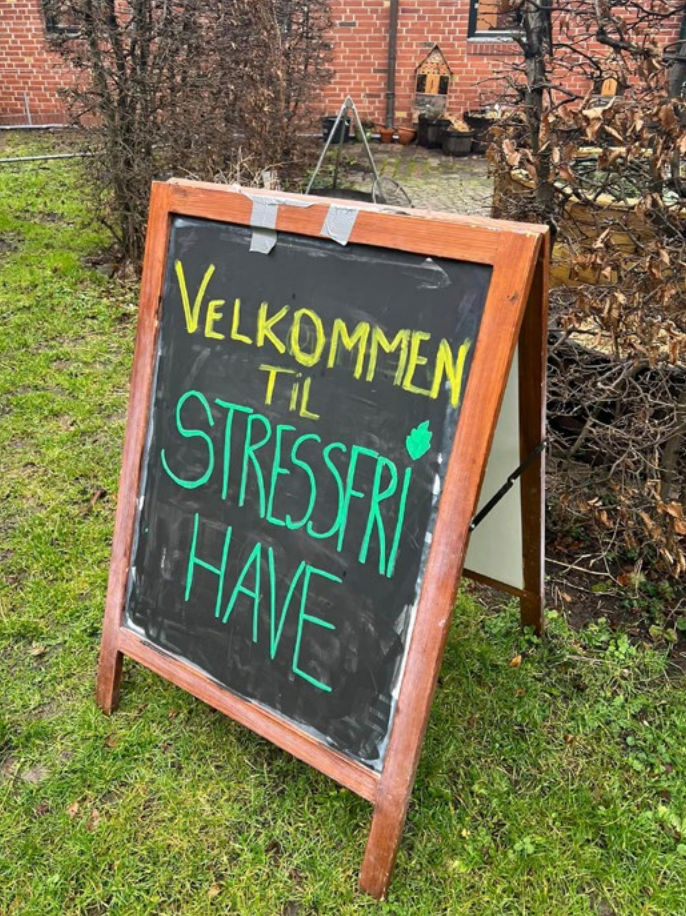 VELKOMMEN
TiL
STRESSFRi
HAVE